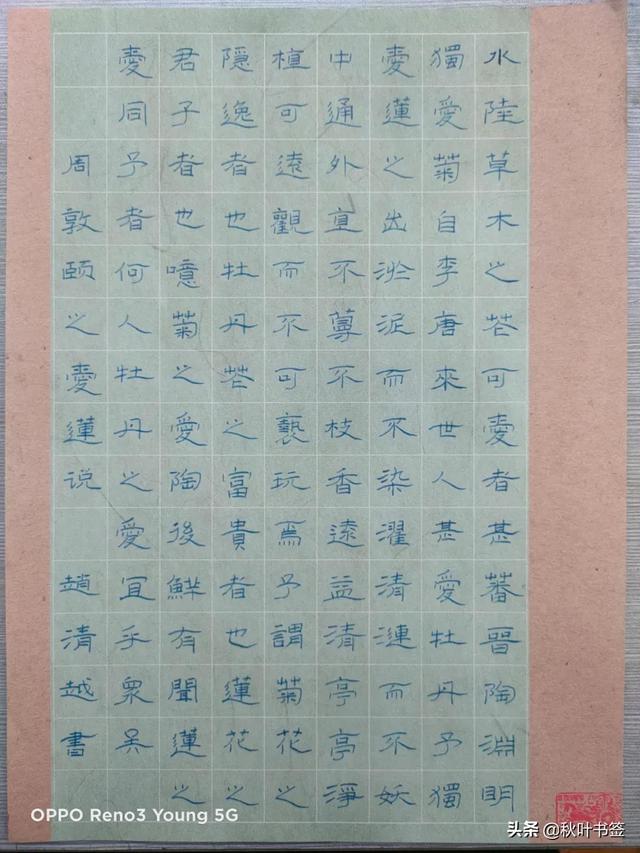 水陸草木之芲可愛者甚蕃晉陶淵明
獨愛菊自李唐來世人甚愛牡丹予獨
愛蓮之出淤泥而不染濯清漣而不妖
中通外直不蔓不枝香遠益清亭亭淨
植可遠觀而不可褻玩焉予謂菊花之
隱逸者也牡丹芲之富貴者也蓮花之
君子者也噫菊之愛陶後鮮有聞蓮之
愛同予者何人牡丹之愛宜乎衆矣
周敦颐之愛蓮说 趙清越書
OPPO Reno3 Young 5G
头条 @秋叶书签